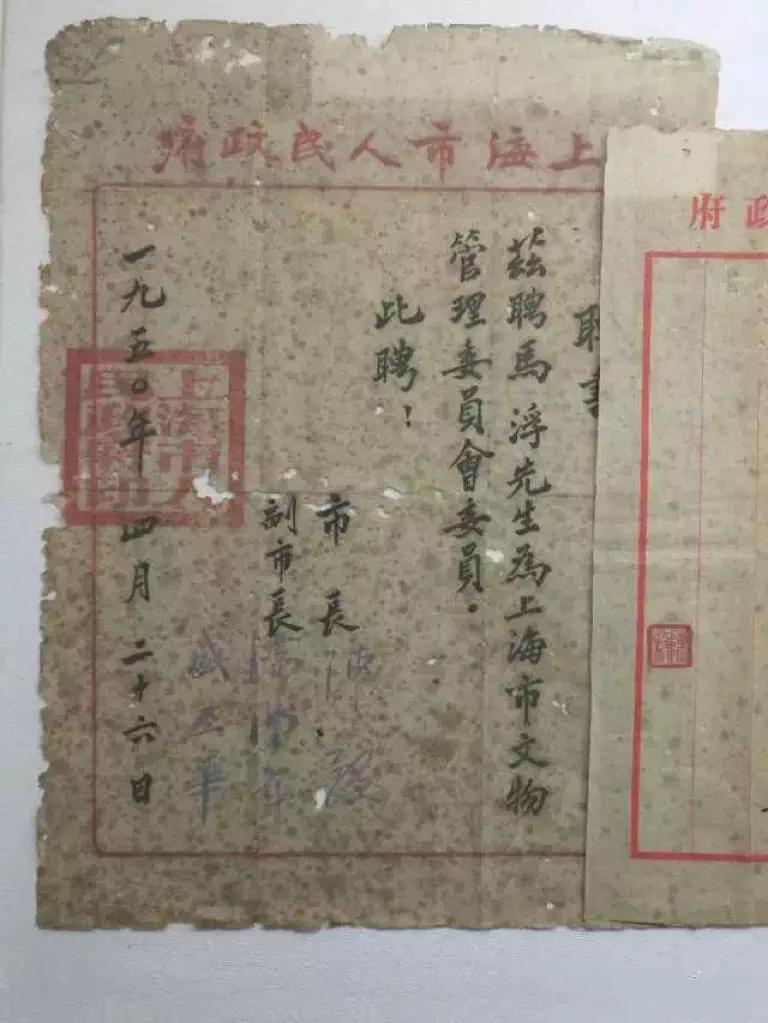 上海市人民政府
聘書
茲聘馬 浮先生為上海市文物
管理委員會委員。
此聘！
市長 陳毅
副市長 潘漢年
盛丕華
一九五〇年四月二十六日
上海市人民政府印
政府